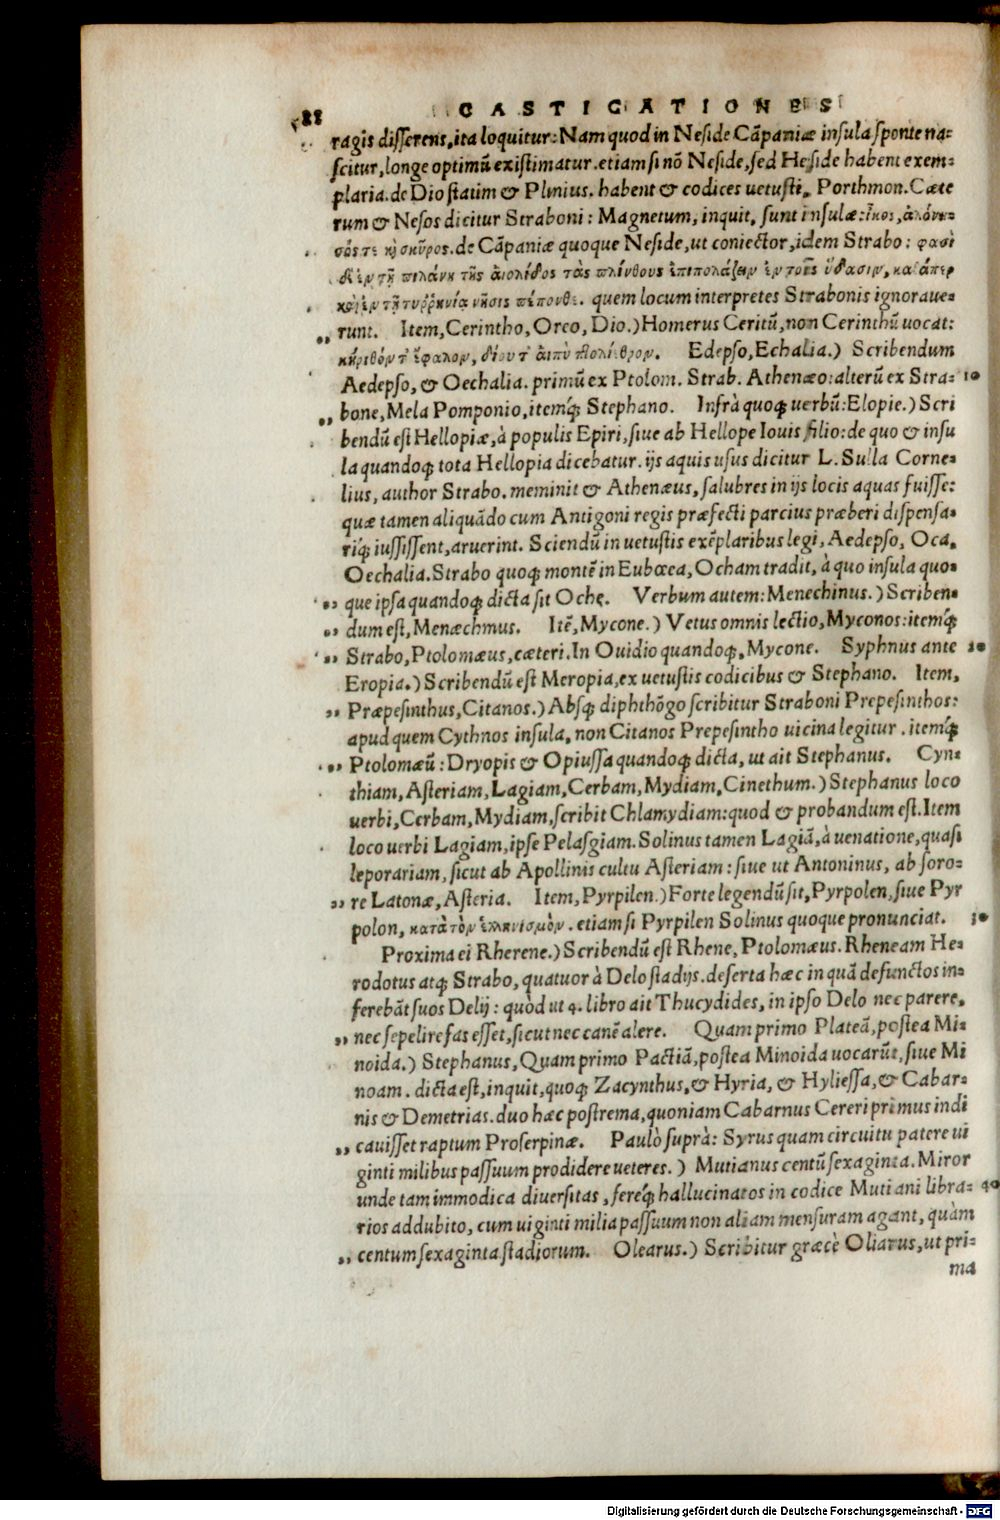 88 CASTIGATIONES
ragis disserens, ita loquitur: Nam quod in Neside Cãpaniæ insula sponte na-
scitur, longe optimũ existimatur. etiam si nõ Neside, sed Heside habent exem-
plaria. de Dio statim & Plinius. habent & codices uetusti, Porthmon. Cæte
rum & Nesos dicitur Straboni: Magnetum, inquit, sunt insulæ: ἴκος, ἁλόννη-
σός τε κỳ σκῦρος. de Cãpaniæ quoque Neside, ut coniector, idem Strabo: φασὶ
δὲ ἐν τῇ πιτάνη τῆς ἀιολίδος τὰς πλίνθους ἐπιπολάζειν ἐν τοῖς ὕδασιν, καθάπερ
καὶ ἐν τῇ τυῤῥηνίᾳ νῆσις πέπονθε. quem locum interpretes Strabonis ignoraue-
„ runt. Item, Cerintho, Oreo, Dio.) Homerus Ceritũ, non Cerinthũ uocat:
κήριθόν τ᾽ ἔφαλον, δίου τ᾽ ἀιπὺ πτολίεθρον. Edepso, Echalia.) Scribendum
Aedepso, & Oechalia. primũ ex Ptolom. Strab. Athenæo: alterũ ex Stra- 10
„ bone, Mela Pomponio, itemq́; Stephano. Infrà quoq; uerbũ: Elopie.) Scri
bendũ est Hellopiæ, à populis Epiri, siue ab Hellope Iouis filio: de quo & insu
la quandoq; tota Hellopia dicebatur. ijs aquis usus dicitur L. Sulla Corne-
lius, author Strabo. meminit & Athenæus, salubres in ijs locis aquas fuisse:
quæ tamen aliquãdo cum Antigoni regis præfecti parcius præberi dispensa-
riq́; iussissent, aruerint. Sciendũ in uetustis exẽplaribus legi, Aedepso, Oca,
Oechalia. Strabo quoq; montẽ in Eubœa, Ocham tradit, à quo insula quo-
„ que ipsa quandoq; dicta sit Ochę. Verbum autem: Menechinus.) Scriben-
„ dum est, Menæchmus. Itẽ, Mycone.) Vetus omnis lectio, Myconos: itemq́;
„ Strabo, Ptolomæus, cæteri. In Ouidio quandoq;, Mycone. Syphnus ante 20
Eropia.) Scribendũ est Meropia, ex uetustis codicibus & Stephano. Item,
„ Præpesinthus, Citanos.) Absq; diphthõgo scribitur Straboni Prepesinthos:
apud quem Cythnos insula, non Citanos Prepesintho uicina legitur. itemq́;
„ Ptolomæũ: Dryopis & Opiussa quandoq; dicta, ut ait Stephanus. Cyn-
thiam, Asteriam, Lagiam, Cerbam, Mydiam, Cinethum.) Stephanus loco
uerbi, Cerbam, Mydiam, scribit Chlamydiam: quod & probandum est. Item
loco uerbi Lagiam, ipse Pelasgiam. Solinus tamen Lagiã, à uenatione, quasi
leporariam, sicut ab Apollinis cultu Asteriam: siue ut Antoninus, ab soro-
„ re Latonæ, Asteria. Item, Pyrpilen.) Forte legendũ sit, Pyrpolen, siue Pyr
polon, κατὰ τὸν ἑλληνισμὸν. etiam si Pyrpilen Solinus quoque pronunciat. 30
Proxima ei Rherene.) Scribendũ est Rhene, Ptolomæus. Rheneam He-
rodotus atq; Strabo, quatuor à Delo stadijs. deserta hæc in quã defunctos in-
ferebãt suos Delij: quòd ut 4. libro ait Thucydides, in ipso Delo nec parere,
„ nec sepelire fas esset, sicut nec canẽ alere. Quam primo Plateã, postea Mi-
noida.) Stephanus, Quam primo Pactiã, postea Minoida uocarũt, siue Mi
noam. dicta est, inquit, quoq; Zacynthus, & Hyria, & Hyliessa, & Cabar-
nis & Demetrias. duo hæc postrema, quoniam Cabarnus Cereri primus indi
„ cauisset raptum Proserpinæ. Paulò suprà: Syrus quam circuitu patere ui
ginti milibus passuum prodidere ueteres.) Mutianus centũ sexaginta. Miror
unde tam immodica diuersitas, fereq́; hallucinatos in codice Mutiani libra- 40
rios addubito, cum uiginti milia passuum non aliam mensuram agant, quàm
„ centum sexaginta stadiorum. Olearus.) Scribitur græcè Oliarus, ut pri-
ma
Digitalisierung gefördert durch die Deutsche Forschungsgemeinschaft - DFG